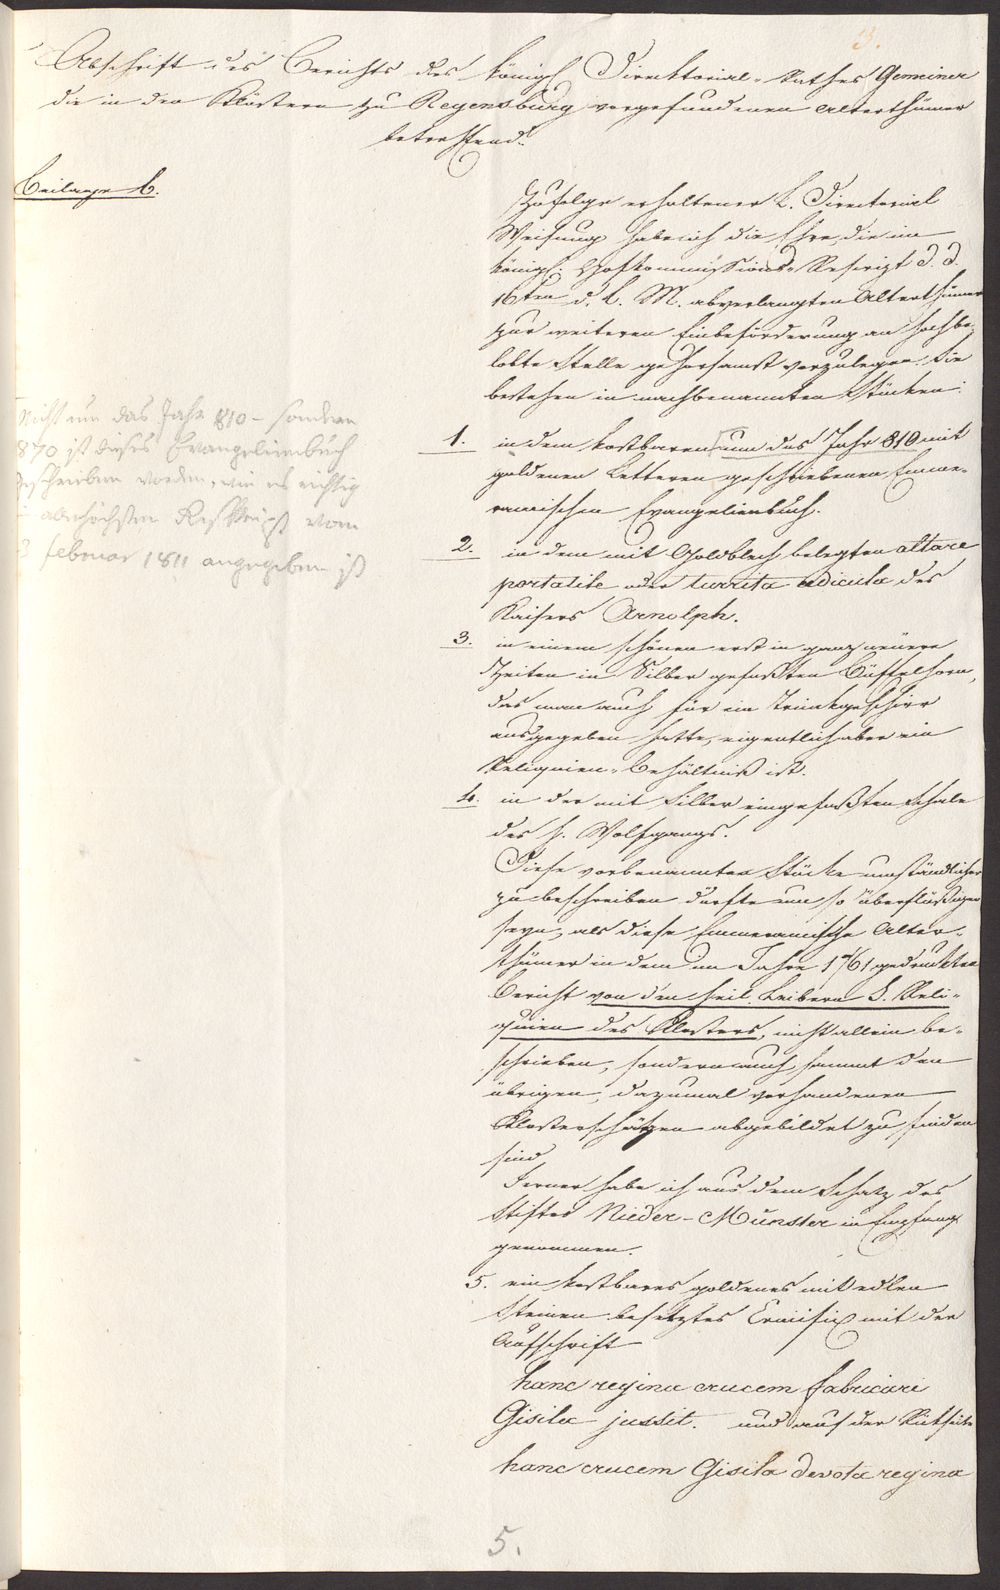 3.
Abschrift des Berichts des königl. Direktorial-Rathes Gemeiner
die in den Klöstern zu Regensburg vorgefundenen Alterthümer
betreffend.
Beilage C.
Zufolge erhaltener k. Directorial
Weisung habe ich die Ehre, die im
königl. Hofkommissions-Rescript d. d.
16ten d. l. M. abverlangten Alterthümer
zur weiteren Einbeförderung an hochbe-
lobte Stelle gehorsamst vorzulegen. Sie
bestehen in nachbenannten Stücken:
Nicht um das Jahr 810 – sondern
870 ist dieses Evangelienbuch
geschrieben worden, wie es richtig
im allerhöchsten Reskript vom
3 Februar 1811 angegeben ist
1. in dem kostbaren um das Jahr 810 mit
goldenen Letteren geschriebenen Emme-
ramischen Evangelienbuch.
2. in dem mit Goldblech belegten altare
portatile oder turrita edicula des
Kaisers Arnolph.
3. in einem schönen erst in ganz neuern
Zeiten in Silber gefaßten Büffelhorn,
das man auch für ein Trinkgeschirr
ausgegeben hatte, eigentlich aber ein
Reliquien-Behältniß ist.
4. in der mit Silber eingefaßten Schale
des h. Wolfgangs.
Diese vorbenannten Stücke umständlicher
zu beschreiben dürfte um so überflüßiger
seyn, als diese Emmeramische Alter-
thümer in dem im Jahre 1761 gedruckten
Bericht von den heil. Leibern & Reli-
quien des Klosters, nicht allein be-
schrieben, sondern auch sammt den
übrigen, dazumal vorhandenen
Klosterschätzen abgebildet zu finden
sind
Ferner habe ich aus dem Schatz des
Stiftes Nieder-Münster in Empfang
genommen.
5. ein kostbares goldenes mit edlen
Steinen besetztes Crucifix mit der
Aufschrift
hanc regina crucem fabricari
Gisila jussit. und auf der Rückseite
hanc crucem Gisila devota regina
5.